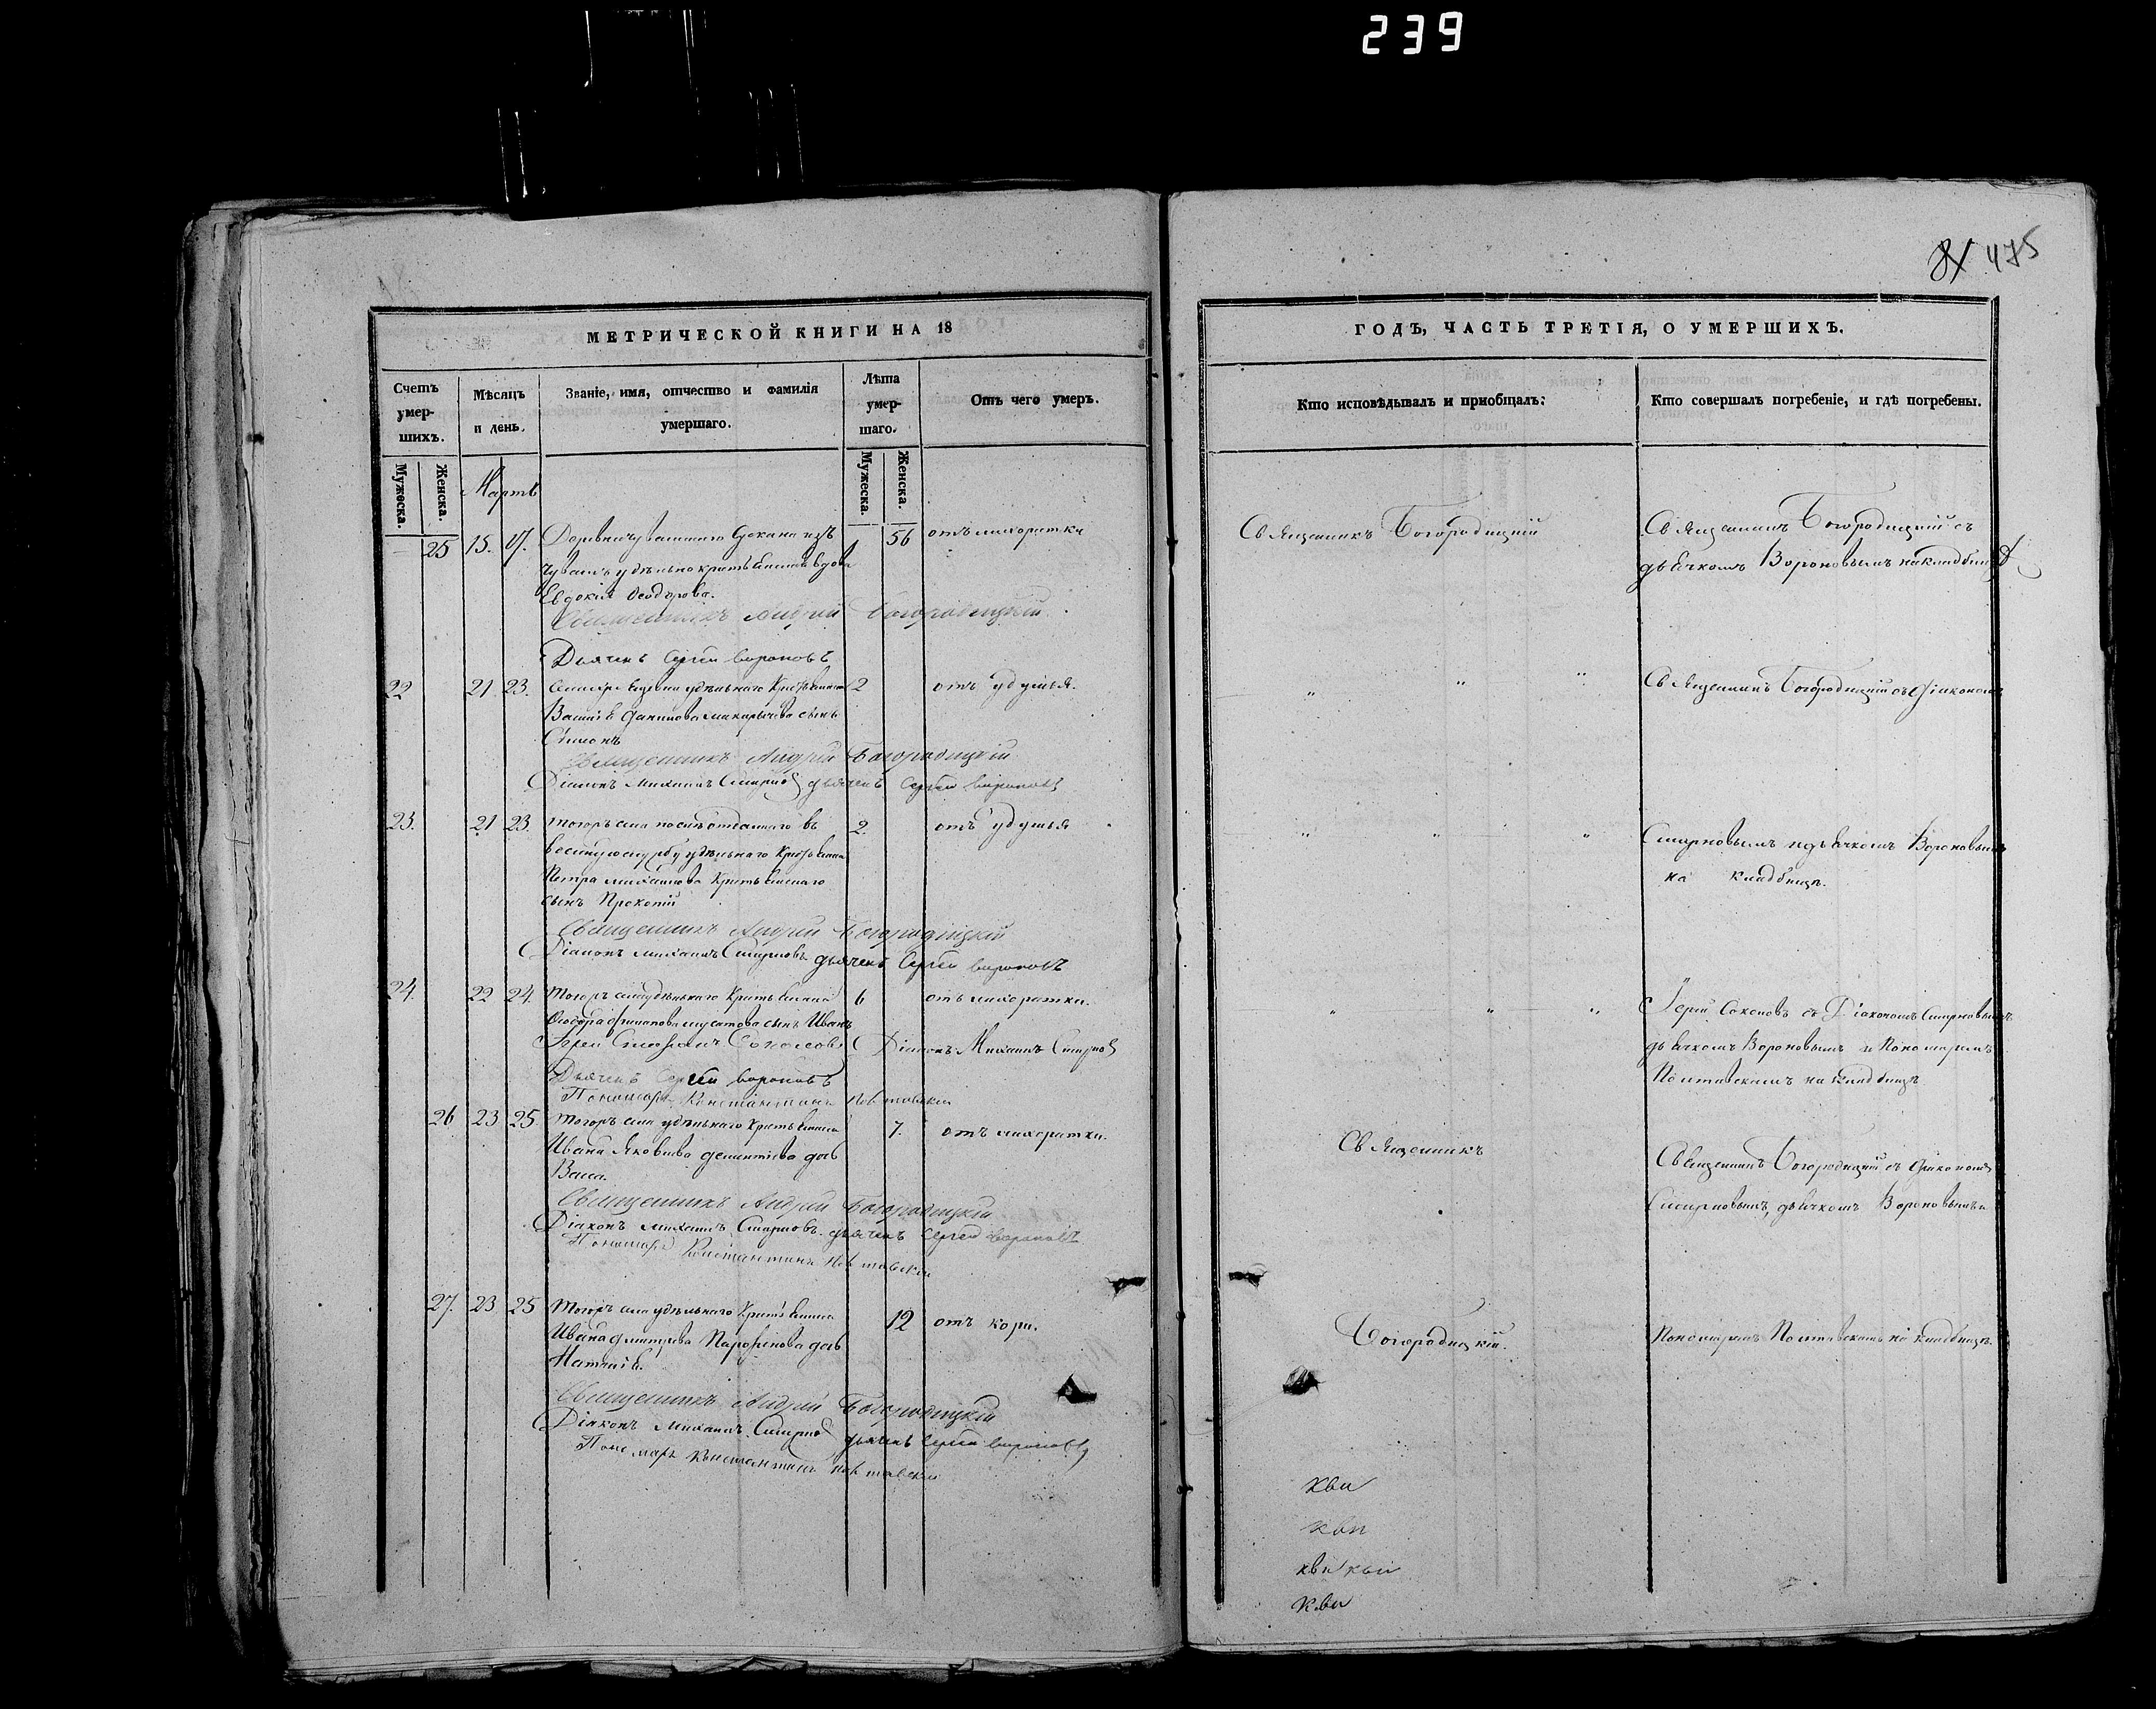 239
81 475
МЕТРИЧЕСКОЙ КНИГИ НА 18
Счетъ умер-шихъ.
Мѣсяцъ и день.
Званіе, имя, отчество и фамилія умершаго.
Лѣта умер-шаго.
Отъ чего умеръ.
Мужеска.
Женска.
Мартъ
Мужеска.
Женска.
25 15. 17. Деревни чувашскаго 56 отъ лихоратки
чувашъ удѣльно крестьянская вдова
Евдокія Ѳеодорова.
Священникъ Андрей Богородицкій
Дьячекъ Сергей Вороновъ
22 21 23. удѣльнаго Крестьянина 2 отъ удушья.
Василья Данилова Макарычева сынъ
Симонъ
Священникъ Андрей Богородицкій
Діаконъ Михаилъ Смирновъ дьячекъ Сергей Вороновъ
23. 21 23. Тогожъ села отданнаго въ 2. отъ удушья
военную службу удѣльнаго Крестьянина
Петра Михайлова
сынъ Прокопій
Священникъ Андрей Богородицкій
Діаконъ Михаилъ Смирновъ дьячекъ Сергей Вороновъ
24. 22 24. Тогожъ села удѣльнаго Крестьянина 6 отъ лихоратки.
Ѳеодора Филипова Мусатова сынъ Иванъ
Іерей Соколовъ Діаконъ Михаилъ Смирновъ
Дьячекъ Сергей Вороновъ
Пономарь Константинъ Полтавскій
26 23 25 Тогожъ села удѣльнаго Крестьянина 7. отъ лихоратки.
Ивана Яковлева Дементіева дочь
Васса.
Священникъ Андрей Богородицкій
Діаконъ Михаилъ Смирновъ. дьячекъ Сергей Вороновъ
Пономарь Константинъ Полтавскій
27. 23 25 Тогожъ села удѣльнаго Крестьянина 12 отъ кори.
Ивана Дмитріева Парфенова дочь
Наталія.
Священникъ Андрей Богородицкій
Діаконъ Михаилъ Смирновъ дьячекъ Сергей Вороновъ
Пономарь Константинъ Полтавскій
ГОДЪ, ЧАСТЬ ТРЕТІЯ, О УМЕРШИХЪ.
Кто исповѣдывалъ и пріобщалъ:
Кто совершалъ погребеніе, и гдѣ погребены.
Священникъ Богородицкій
Священникъ Богородицкій съ
дьячкомъ Вороновымъ на кладбищѣ
" " "
Священникъ Богородицкій съ Діакономъ
" " "
Смирновымъ и дьячкомъ Вороновымъ
на кладбищѣ.
" " "
Іерей Соколовъ съ Діакономъ Смирновымъ
дьячкомъ Вороновымъ и Пономаремъ
Полтавскимъ на кладбищѣ
Священникъ
Священникъ Богородицкій съ Діакономъ
Смирновымъ, дьячкомъ Вороновымъ и
Богородицкій.
Пономаремъ Полтавскимъ на кладбищѣ.
кви
кви
кви кви
кви